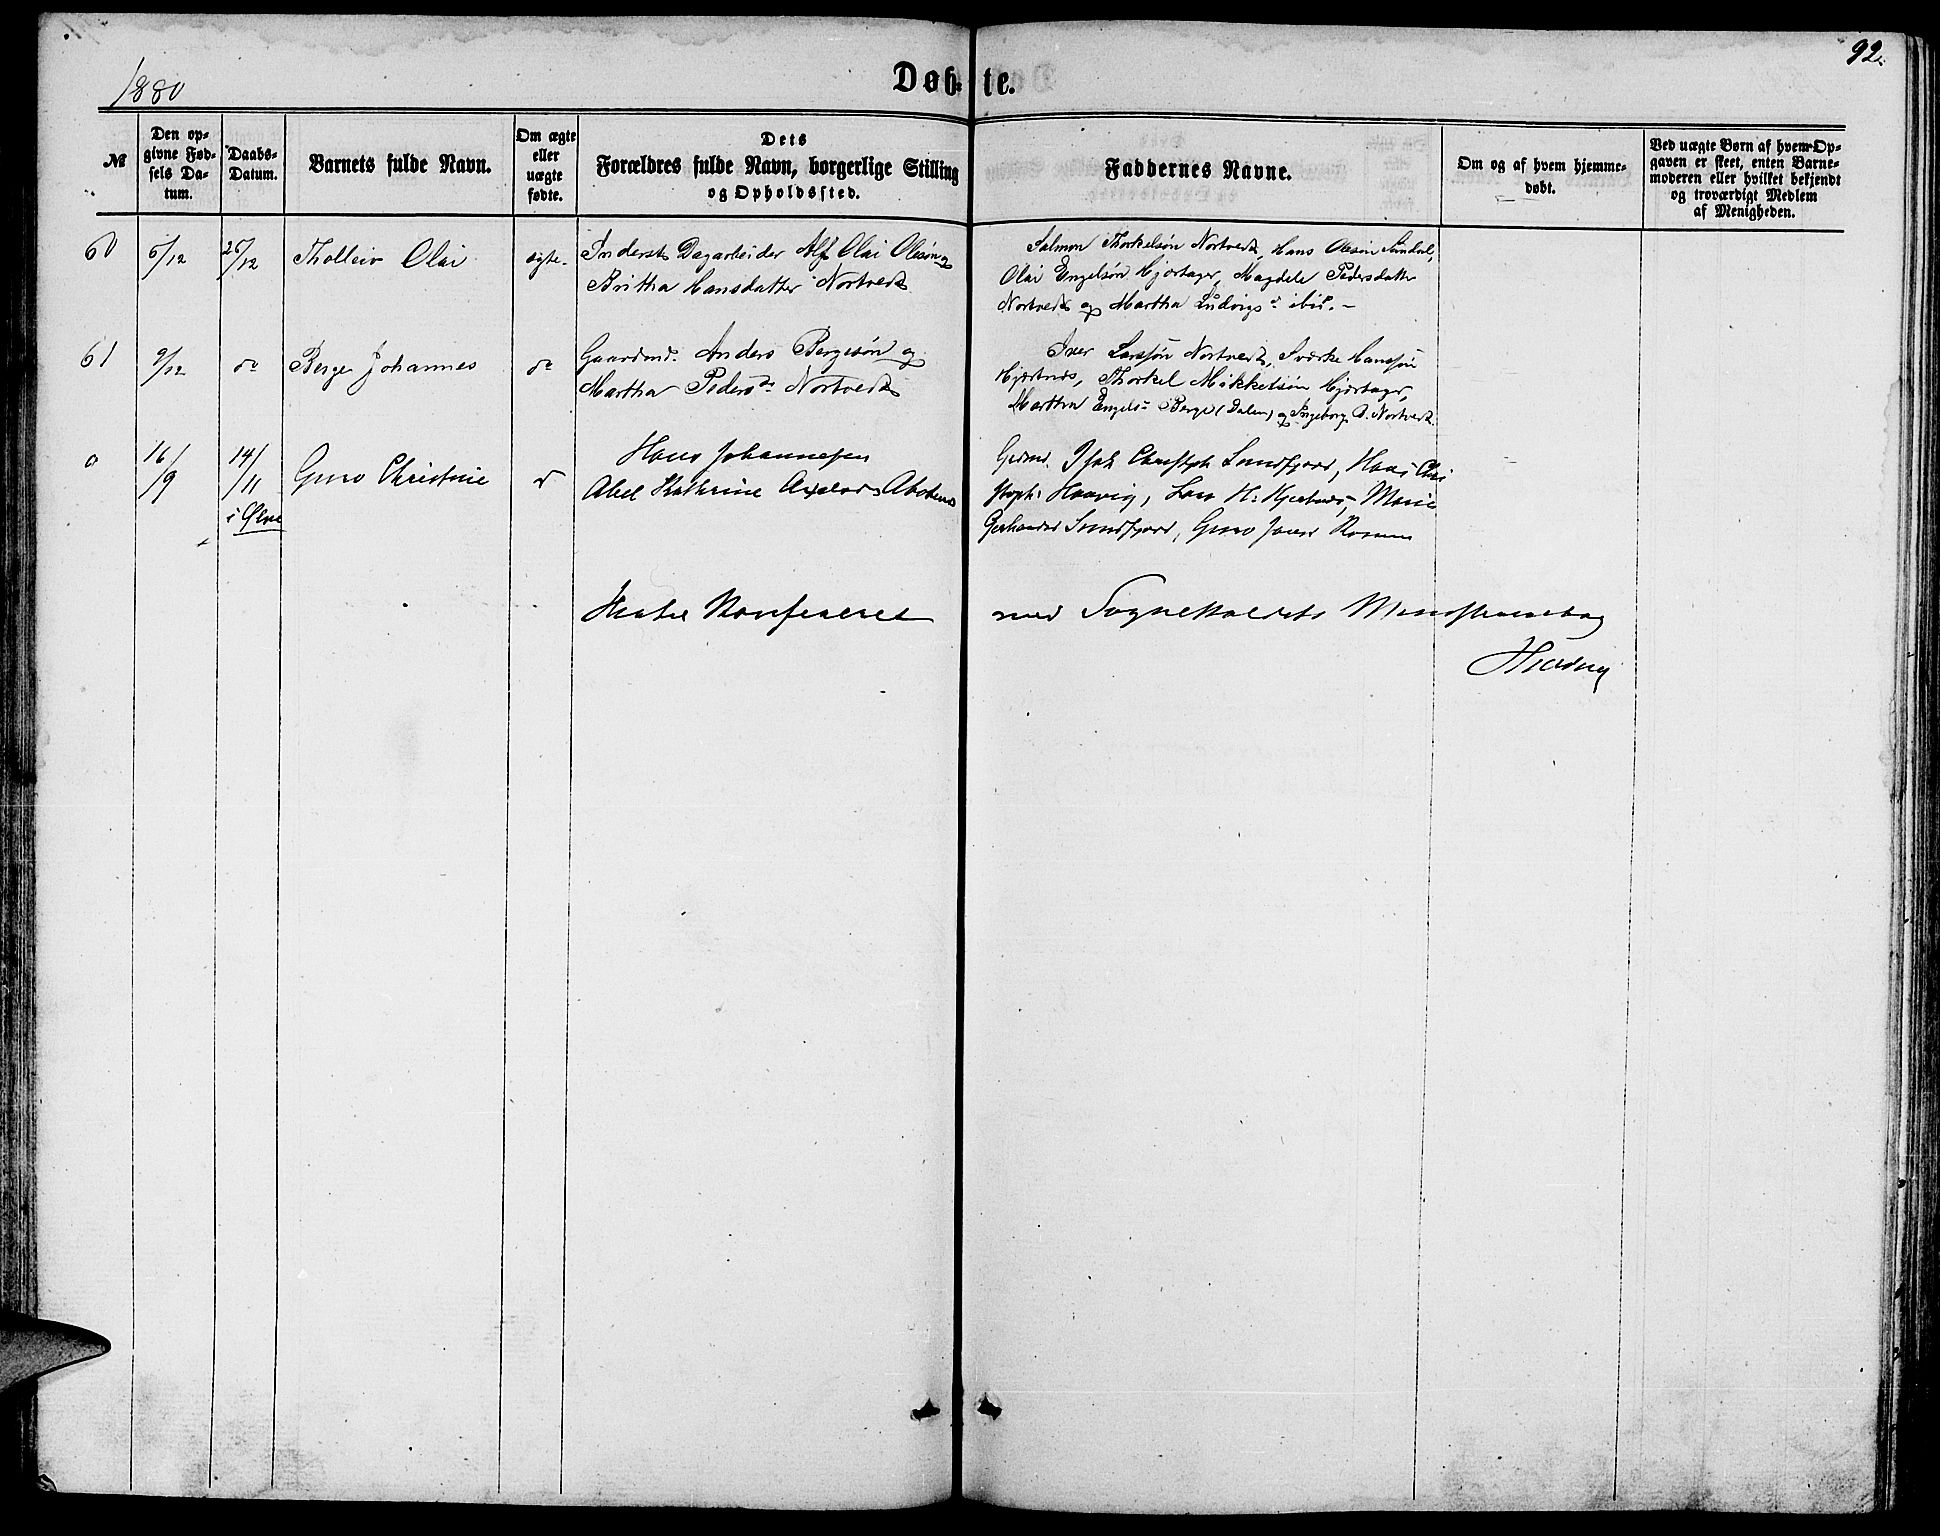 92.
1880
Døbte.
№
Den opgivne Fødsels Datum.
Daabs-Datum.
Barnets fulde Navn.
Om ægte eller uægte fødte.
Dets Forældres fulde Navn, borgerlige Stilling og Opholdssted.
Faddernes Navne.
Om og af hvem hjemmedøbt.
Ved uægte Børn af hvem Opgaven er skeet, enten Barnemoderen eller hvilket bekjendt og troværdigt Medlem af Menigheden.
60 6/12 26/12 Tholleiv Olai ægte. Inderst Dagarbeider Alf Olai Olesøn og
Britha Hansdatter Nortvedt
Salmon Thorkelsøn Nortvedt, Hans Olesøn
Olai Engelsøn Hjortager, Magdele Pedersdatter
Nortvedt og Martha Ludvigs d ibid. -
61 9/12 do Berge Johannes do Gaardmd. Anders Bergesøn og
Martha Peders dr Nortvedt
Iver Larssøn Nortvedt, Sværke Hanssøn
Hjertnes, Thorkel Mikkelsøn Hjortager,
Martha Engels d Berge (Dalen) og Ingeborg B. Nortvedt.
0 16/9 14/11 i Ølve Guro Christine d Hans Johannesen
Abel Kathrine
Grdmd. Isak Christoph Sundfjord, Hans Chri
stoph: Haavig, Lars H. Hjertnes, Marie
Gerhardsd Sundfjord, Guro Jansd
Rettet Konfereret med Sognekaldets Ministerialbog